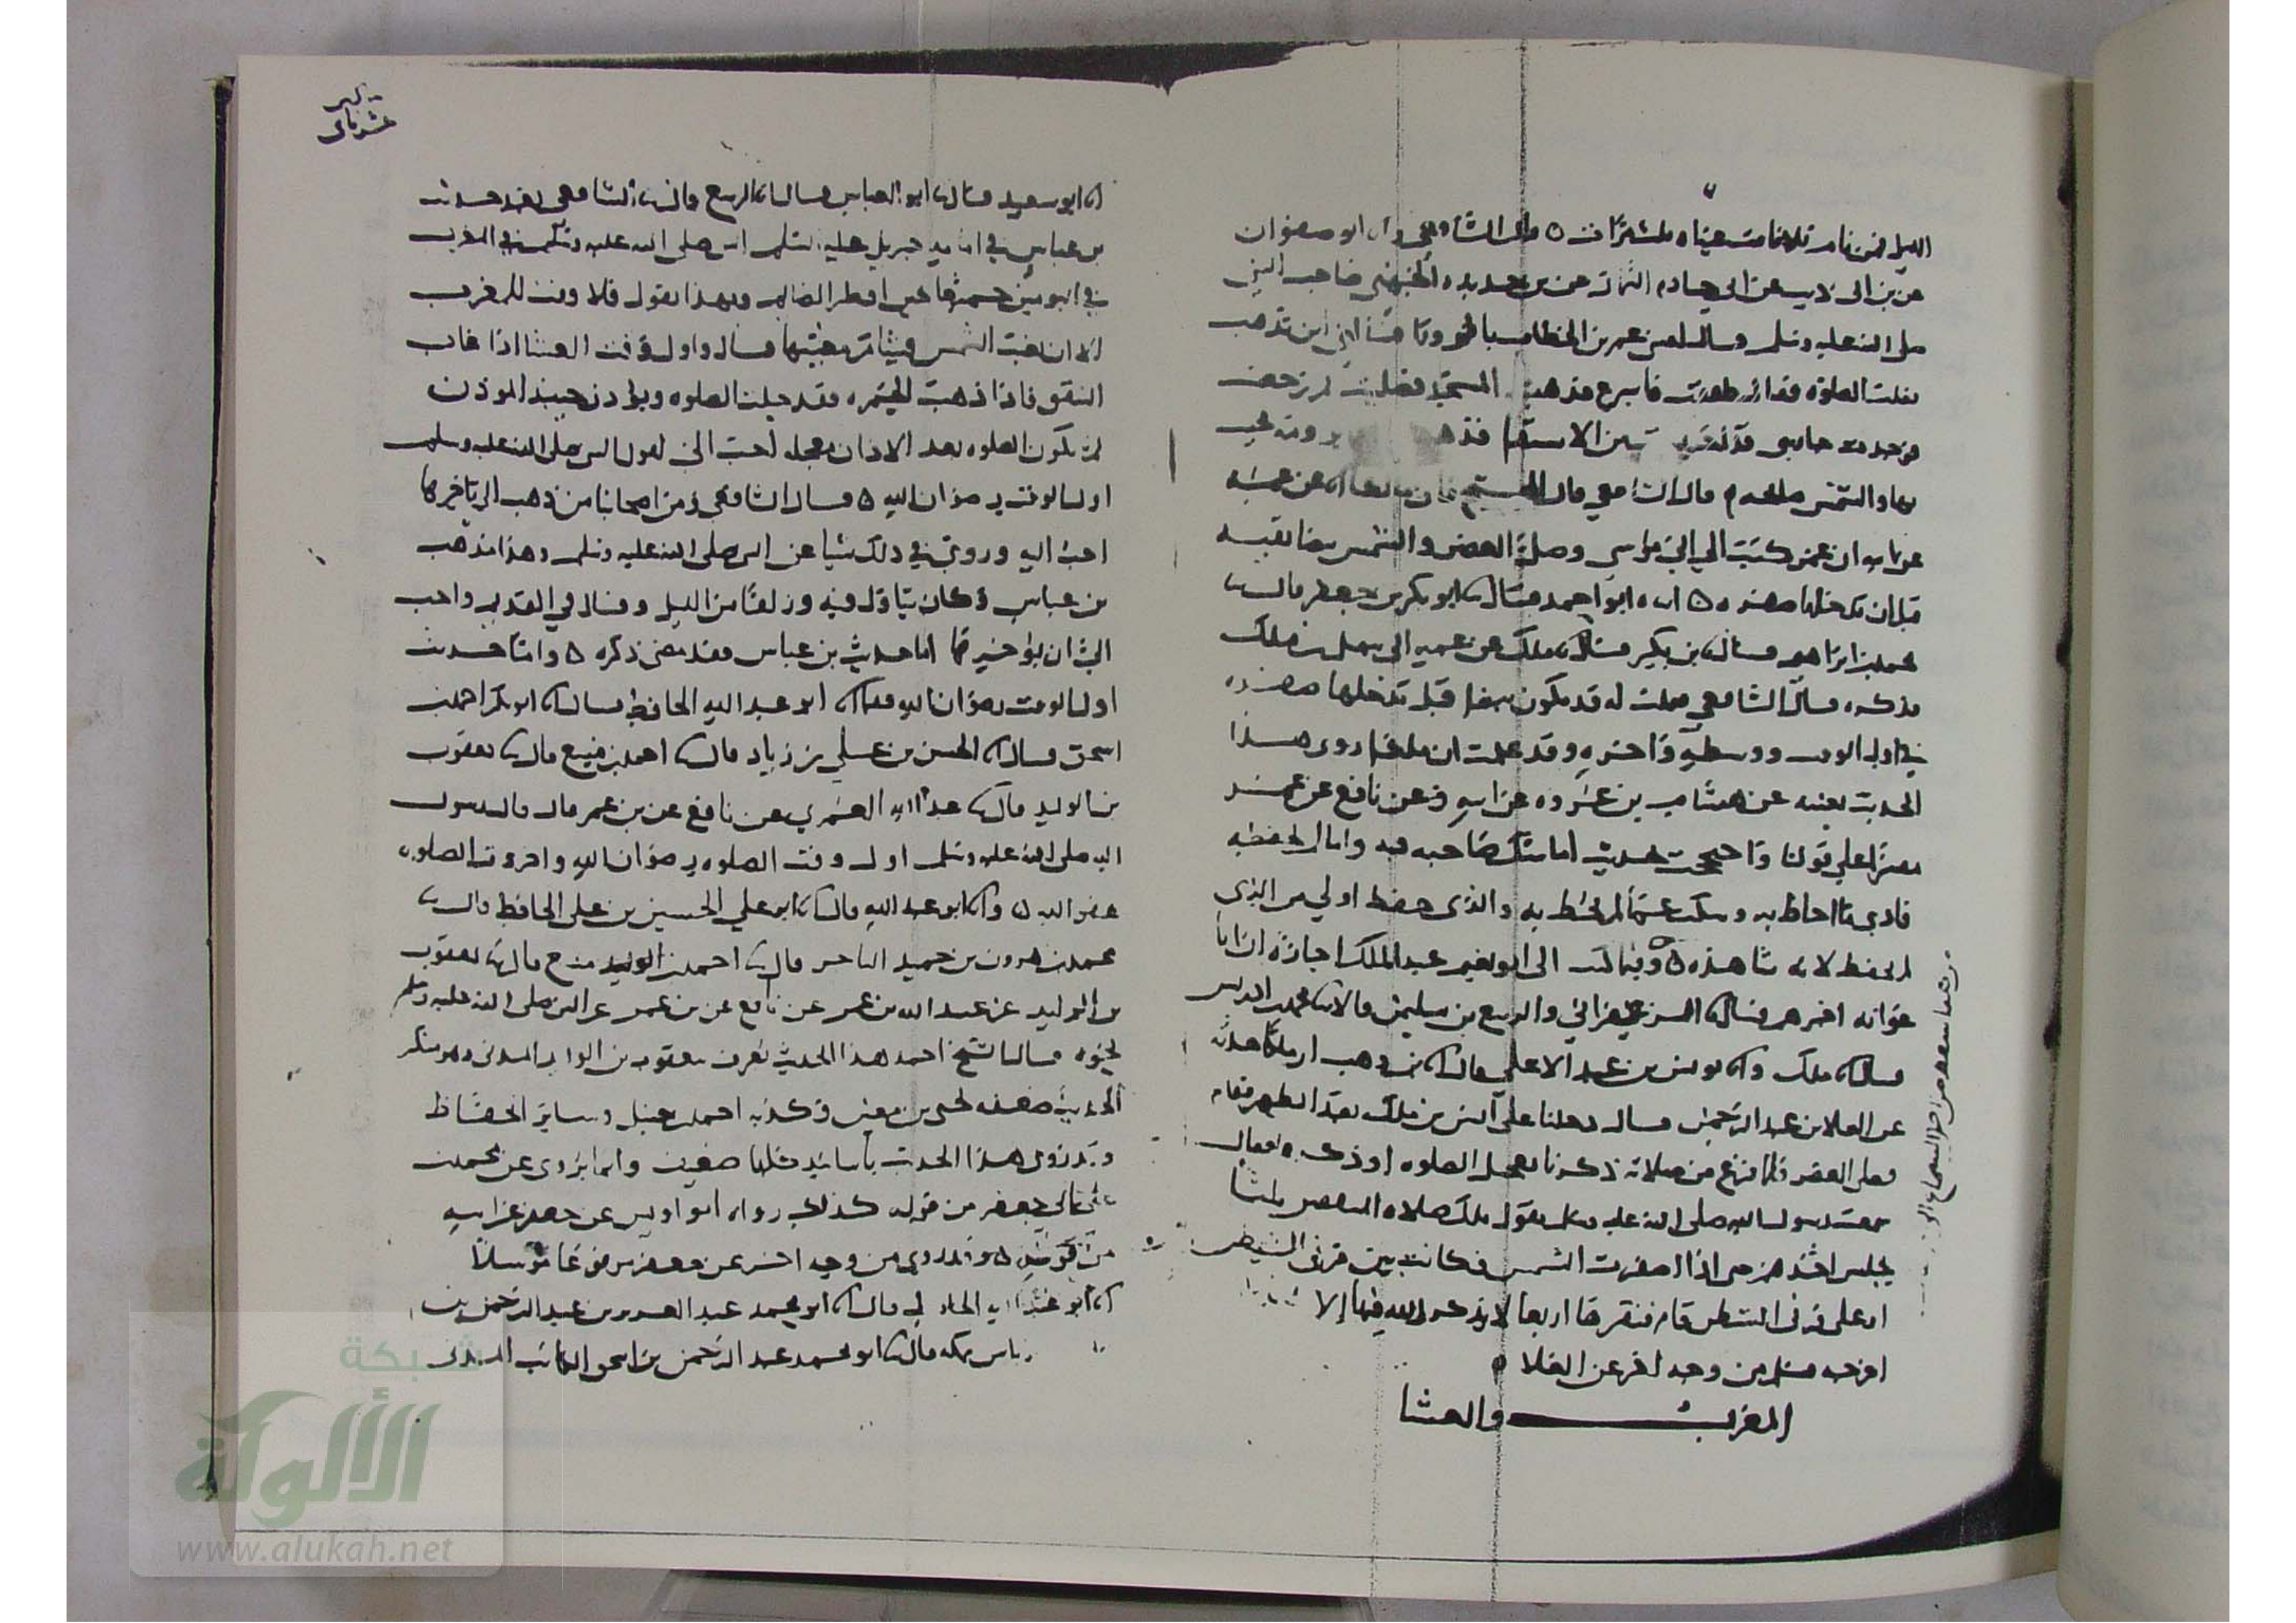 الليل فمن نام فلا نامت عيناه ثلث مرات ٥ قال الشافعي وابو صفوان
عن بن ابي ذيب عن ابي حازم التمار عن بن حديدة الجهني صاحب النبي
صلى الله عليه وسلم قال لقيني عمر بن الخطاب بالزورا فسالني اين تذهب
فقلت الصلوة فقال طففت فاسرع فذهبت المسجد فصليت ثم رجعت
فوجدت جاريتي قد احتبست من الاستقا فذهبت
بها والشمس صالحه قال الشافعي قال
عن نافع ان عمر كتب الى ابي موسى وصل العصر والشمس بيضا نقيه
قبل ان تدخلها صفره ٥ انا ابو احمد قال نا ابو بكر بن جعفر قال نا
محمد بن ابراهيم قال نا بن بكير قال نا ملك عن عمه ابي سهيل بن ملك
فذكره قال الشافعي فقلت له قد يكون بيضا قبل تدخلها صفره
في اول الوقت ووسطه واخره وقد علمت ان ملكا روى هذا
الحديث بعينه عن هشام بن عروه عن ابيه وعن نافع عن عمر
مفسرا على قولنا واحتججت بحديث اما شك صاحبه فيه واما لم يحفظه
فادى ما احاط به وسكت عما لم يحط به والذي حفظ اولى من الذي
لم يحفظ لانه شاهد ٥ وفيما كتب الى ابو نعيم عبد الملك اجازة ان ابا
عوانه اخبرهم قال نا الزعفراني والربيع بن سليمن قالا نا محمد بن ادريس
قال نا ملك وانا يونس بن عبد الاعلى قال انا بن وهب ان ملكا حدثه
عن العلا بن عبد الرحمن قال دخلنا على انس بن ملك بعد الظهر فقام
فصلى العصر فلما فرغ من صلاته ذكرنا تعجيل الصلوه او ذكره فقال
سمعت رسول الله صلى الله عليه وسلم يقول تلك صلاة المنافقين ثلثا
يجلس احدهم حتى اذا اصفرت الشمس فكانت بين قرني الشيطن
او على قرني الشيطن قام فنقرها اربعا لا يذكر الله فيها الا
اخرجه مسلم من وجه اخر عن العلا ٥
المغرب والعشا
انا ابو سعيد قال نا ابو العباس قال انا الربيع قال نا الشافعي بعد حديث
بن عباس في امامة جبريل عليه السلم النبي صلى الله عليه وسلم في المغرب
في اليومين جميعا حين افطر الصايم وبهذا نقول فلا وقت للمغرب
الا ان تغيب الشمس قال واول وقت العشا اذا غاب
الشفق فاذا ذهبت الحمره فقد حلت الصلوه ويؤذن حينيذ الموذن
ثم تكون الصلوه بعد الاذان معجله احب الي لقول النبي صلى الله عليه وسلم
اول الوقت رضوان الله ٥ قال الشافعي ومن اصحابنا من ذهب الى تاخيرها
احب اليه وروى في ذلك شيا عن النبي صلى الله عليه وسلم وهذا مذهب
بن عباس وكان يتاول فيه وزلفا من الليل وقال في القديم واحب
الي ان يؤخرها اما حديث بن عباس فقد مضى ذكره ٥ واما حديث
اول الوقت رضوان الله فانا ابو عبد الله الحافظ قال نا ابو بكر احمد بن
اسحق قال نا الحسن بن علي بن زياد قال نا احمد بن منيع قال نا يعقوب
بن الوليد قال نا عبد الله العمري عن نافع عن بن عمر قال قال رسول
الله صلى الله عليه وسلم اول وقت الصلوه رضوان الله واخر وقت الصلوه
عفو الله ٥ وانا ابو عبد الله قال نا ابو علي الحسين بن علي الحافظ قال نا
محمد بن هرون بن حميد التاجر قال نا احمد بن الوليد منيع قال نا يعقوب
بن الوليد عن عبيد الله بن عمر عن نافع عن بن عمر عن النبي صلى الله عليه وسلم
نحوه قال الشيخ احمد هذا الحديث يعرف بيعقوب بن الوليد المدني وهو منكر
الحديث ضعفه يحيى بن معين وكذبه احمد بن حنبل وساير الحفاظ
وقد روى هذا الحديث باسانيد كلها ضعيف وانما يروى عن محمد بن
علي ابي جعفر من قوله كذلك رواه ابو اويس عن جعفر عن ابيه
من قوله ٥ وقد روى من وجه اخر عن جعفر مرفوعا مرسلا
انا ابو عبد الله الحافظ قال نا ابو محمد عبد العزيز بن عبد الرحمن بن
بمكه قال نا ابو محمد عبد الرحمن بن اسحق الكاتب
شبكة
الألوكة
www.alukah.net